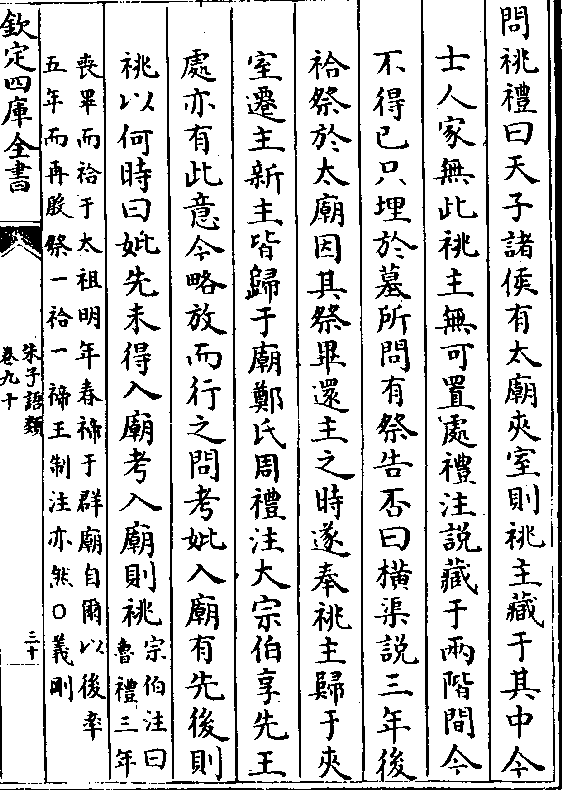 問祧禮曰天子諸侯有太廟夾室則祧主藏于其中今
士人家無此祧主無可置處禮注説藏于兩階間今
不得已只埋於墓所問有祭告否曰横渠説三年後
祫祭於太廟因其祭畢還主之時遂奉祧主歸于夾
室遷主新主皆歸于廟鄭氏周禮注大宗伯享先王
處亦有此意今略放而行之問考妣入廟有先後則
祧以何時曰妣先未得入廟考入廟則祧
宗伯注曰
魯禮三年
喪畢而祫于太祖明年春禘于群廟自爾以後率
五年而再殷祭一祫一禘王制注亦然○義剛
欽定四庫全書
朱子語類
卷九十
三十